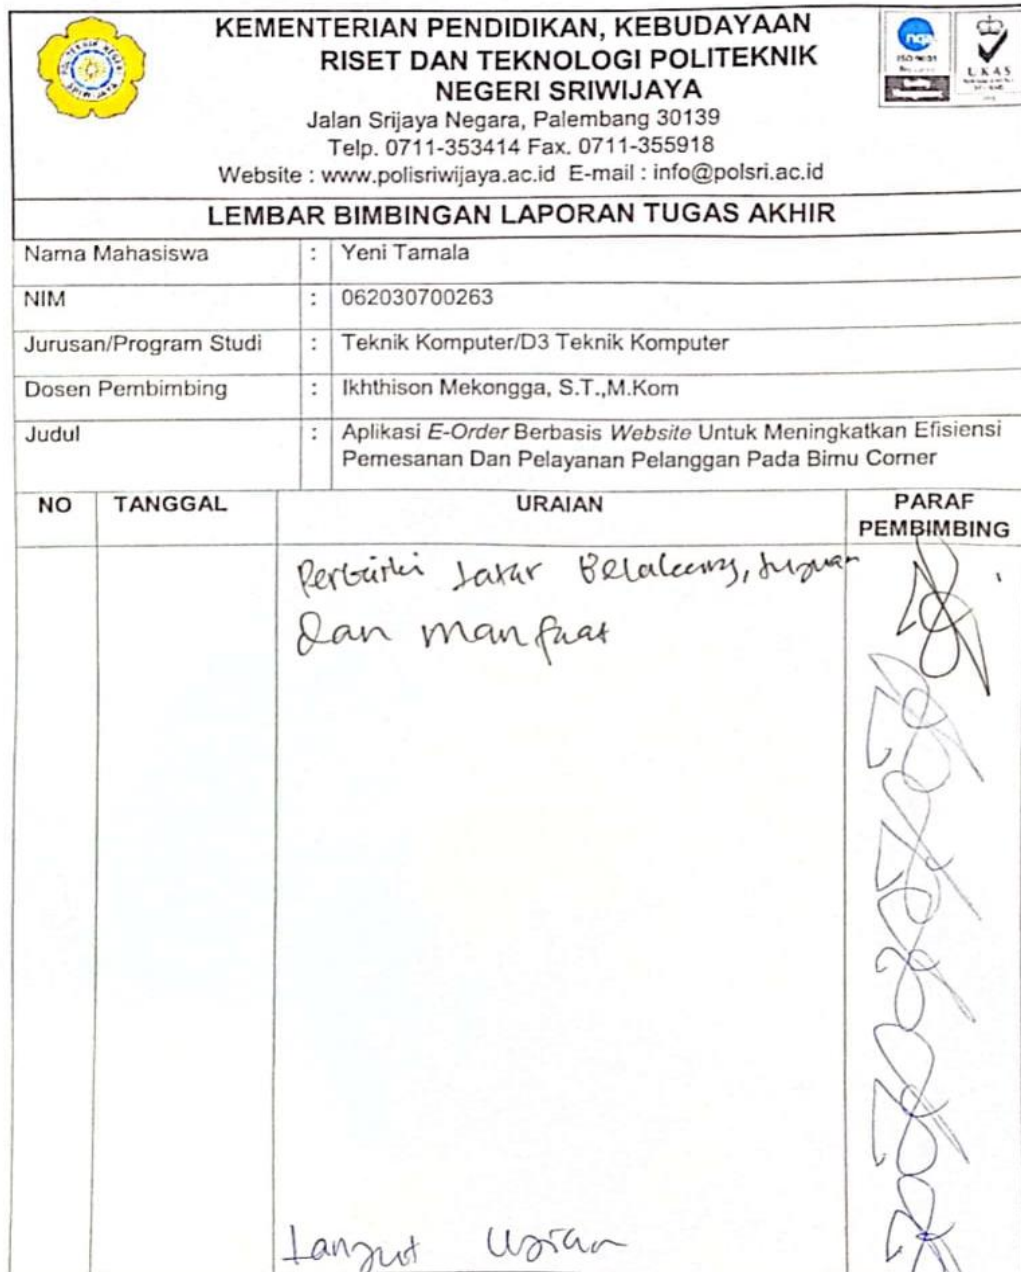 KEMENTERIAN PENDIDIKAN, KEBUDAYAAN
RISET DAN TEKNOLOGI POLITEKNIK
NEGERI SRIWIJAYA
Jalan Srijaya Negara, Palembang 30139
Telp. 0711-353414 Fax. 0711-355918
Website : www.polisriwijaya.ac.id E-mail : info@polsri.ac.id
POLITEKNIK NEGERI SRIWIJAYA
nqa
ISO 9001
UKAS
LEMBAR BIMBINGAN LAPORAN TUGAS AKHIR
Nama Mahasiswa : Yeni Tamala
NIM : 062030700263
Jurusan/Program Studi : Teknik Komputer/D3 Teknik Komputer
Dosen Pembimbing : Ikhthison Mekongga, S.T.,M.Kom
Judul : Aplikasi E-Order Berbasis Website Untuk Meningkatkan Efisiensi
Pemesanan Dan Pelayanan Pelanggan Pada Bimu Corner
NO TANGGAL URAIAN PARAF
PEMBIMBING
Perbaiki Latar Belakang, tujuan
dan manfaat
Lanjut Ujian